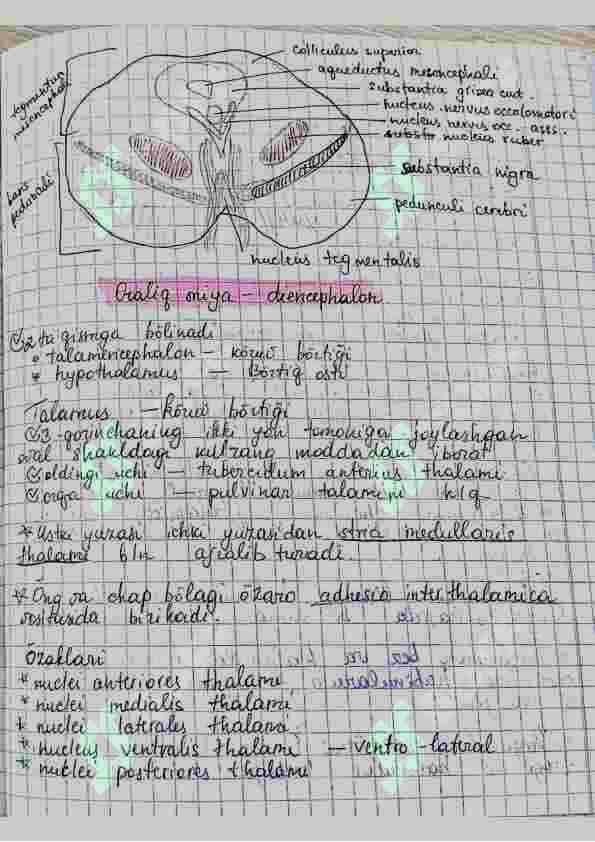 colliculus superior
aqueductus mesencephali
substantia grisea cent.
nucleus nervus occolomotori
nucleus nervus occ. ases.
substo nucleus ruber
substantia nigra
pedunculi cerebri
nucleus tegmentalis
tegmentum
mesencephali
bars
peduncali
Oraliq miya – diencephalon
2 ta qismga bölinadi
* talamencephalon – körüv börtiği
* hypothalamus — Börtiq osti
Talamus — körüv börtiği
3-qorinchaning ikki yon tomoniga joylashgan
oval shakldagi kulrang moddadan iborat
oldingi uchi — tuberculum anterius thalami
orqa uchi — pulvinar talamini h/q
* Ustki yuzasi ichki yuzasidan stria medullaris
thalami b/n ajralib turadi.
* Ong va chap bölagi özaro adhesio interthalamica
vositasida birikadi.
Özaklari
* nuclei anteriores thalami
* nuclei medialis thalami
* nuclei laterales thalami
* nucleus ventralis thalami — ventro-lateral
* nuclei posteriores thalami